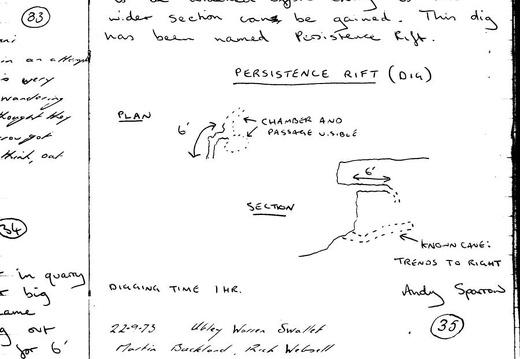 33
in an attempt
is very
wandering
thought they
think, out
34
in quarry
big
came
out
for 6'
wider section can be gained. This dig
has been named Persistence Rift.
PERSISTENCE RIFT (DIG)
PLAN
6'
CHAMBER AND
PASSAGE VISIBLE
6'
SECTION
KNOWN CAVE:
TRENDS TO RIGHT
DIGGING TIME 1 HR.
Andy Sparrow
35
22-9-73 Ubley Warren Swallet
Martin Buckland, Rich Websell